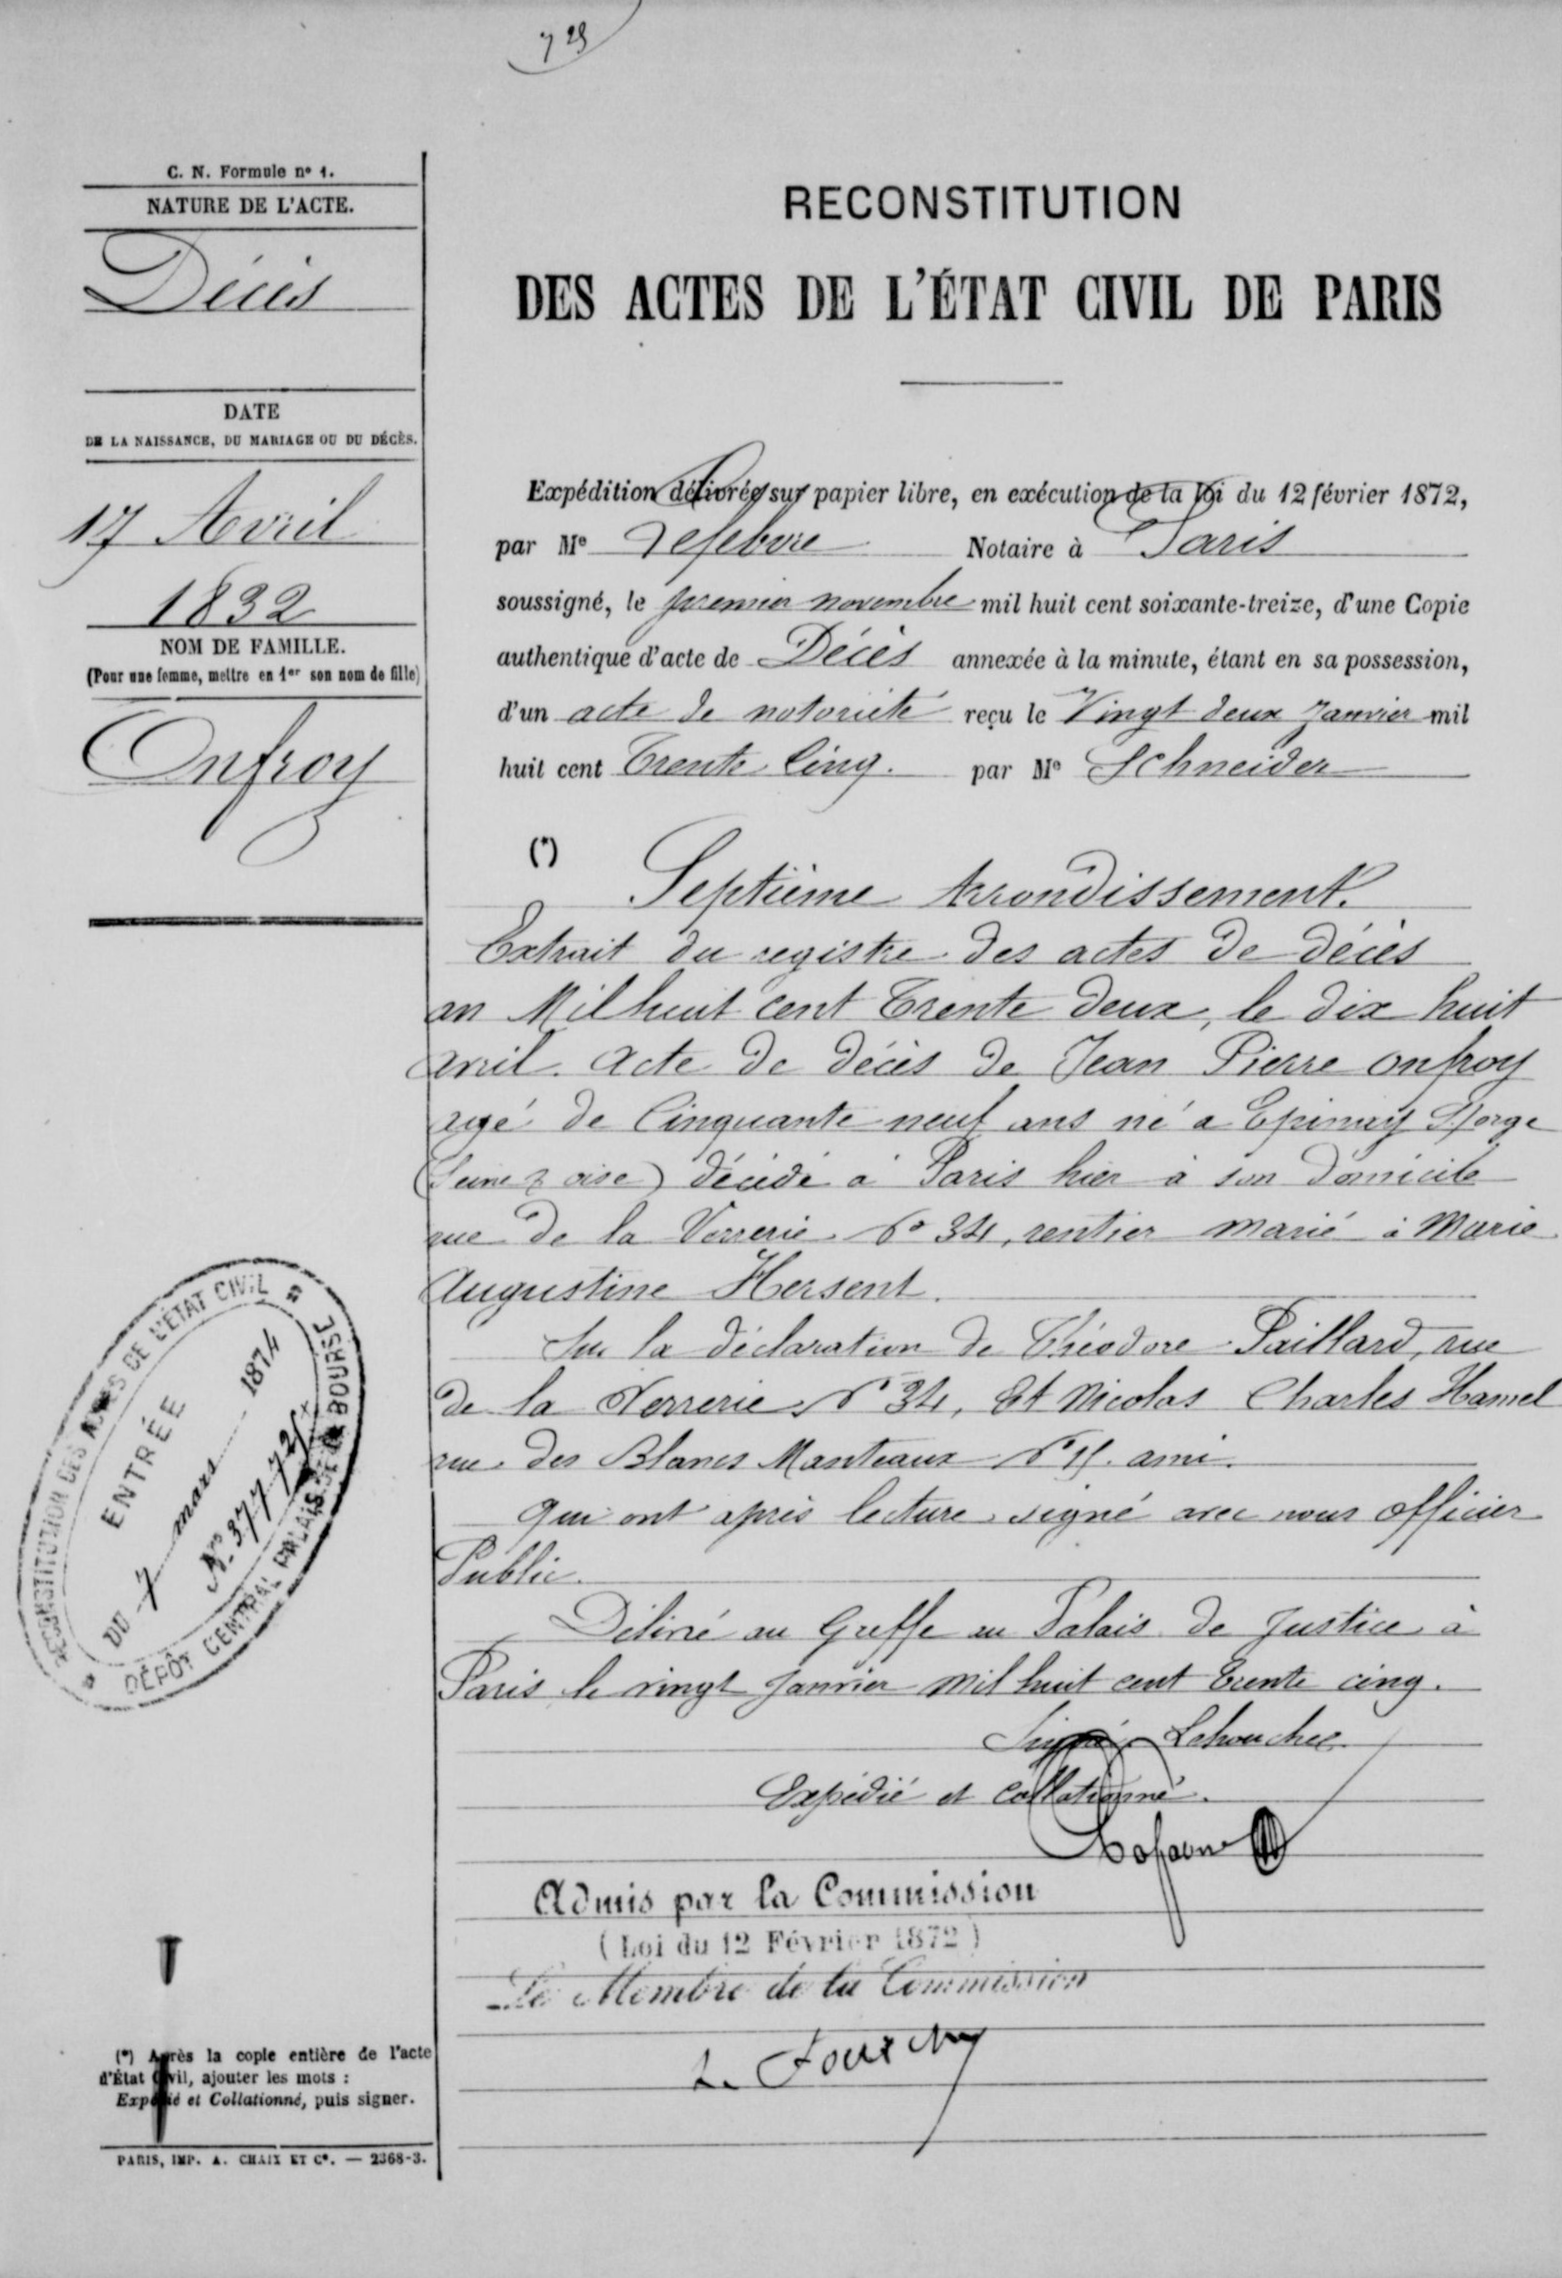 729
C. N. Formule nº 1.
NATURE DE L'ACTE.
Décès
DATE
DE LA NAISSANCE, DU MARIAGE OU DU DÉCÈS.
17 Avril
1832
NOM DE FAMILLE.
(Pour une femme, mettre en 1er son nom de fille)
Onfroy
RECONSTITUTION
DES ACTES DE L'ÉTAT CIVIL DE PARIS
Expédition délivrée sur papier libre, en exécution de la loi du 12 février 1872,
par Me Lefebvre Notaire à Paris
soussigné, le premier novembre mil huit cent soixante-treize, d'une Copie
authentique d'acte de Décès annexée à la minute, étant en sa possession,
d'un acte de notoriété reçu le Vingt deux Janvier mil
huit cent Trente Cinq. par Me Schneider
(*)
Septième Arrondissement.
Extrait du registre des actes de décès
an Mil huit cent Trente deux, le dix huit
avril. Acte de décès de Jean Pierre Onfroy
agé de Cinquante neuf ans né a Epinay S/orge
(Seine & oise) décédé à Paris hier à son domicile
rue de la Verrerie No 34, rentier marié à Marie
Augustine Hersent.
Sur la déclaration de Théodore Paillard, rue
de la Verrerie No 34, Et Nicolas Charles Hamel
rue des Blancs Manteaux No ami.
qui ont après lecture signé avec nous officier
Public.
Délivré au Greffe au Palais de Justice à
Paris le vingt Janvier mil huit cent trente cinq.
Signé
Expédié et Collationné.
Admis par la Commission
(Loi du 12 Février 1872)
Le Membre de la Commission
RECONSTITUTION DES ACTES DE L'ÉTAT CIVIL
ENTRÉE
DU 7 mars 1874
No 37772
DÉPÔT CENTRAL PALAIS DE LA BOURSE
(*) Après la copie entière de l'acte
d'État Civil, ajouter les mots :
Expédié et Collationné, puis signer.
PARIS, IMP. A. CHAIX ET Cº. — 2368-3.